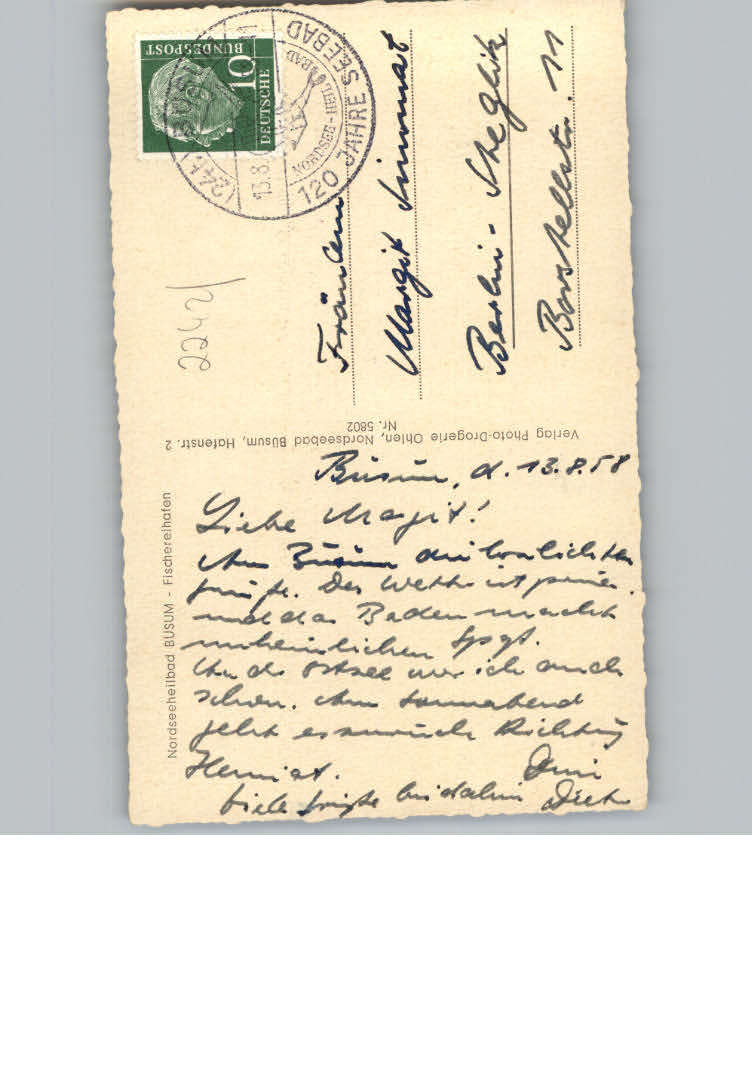 DEUTSCHE
BUNDESPOST
10
(24b) BÜSUM
13.8.
120 JAHRE SEEBAD
NORDSEE-HEILBAD
2242
Fräulein
Margit
Berlin-Steglitz
Borstellstr. 11
Verlag Photo-Drogerie Ohlen, Nordseebad Büsum, Hafenstr. 2
Nr. 5802
Nordseeheilbad BÜSUM - Fischereihafen
Büsum, d. 13.8.58
Liebe Margit!
Aus Büsum die herzlichsten
Grüße. Das Wetter ist prima
und das Baden macht
unheimlichen Spaß.
An der Ostsee war ich auch
schon. Am Sonnabend
geht es zurück Richtung
Heimat.
Viele Grüße bis dahin Dein